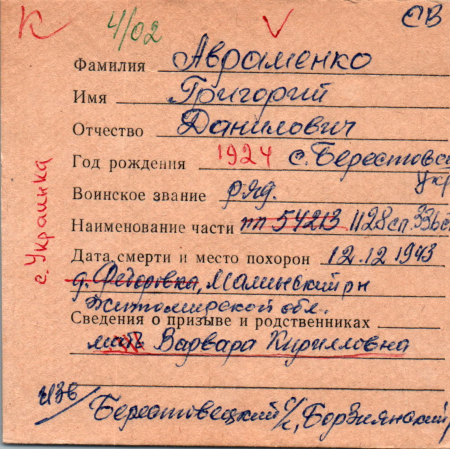 К 4/02 V СВ
Фамилия Авраменко
Имя Григорий
Отчество Данилович
Год рождения 1924 с. Берестове
Укр
Воинское звание ряд.
Наименование части пп 54213 1128 сп. 336 с
Дата смерти и место похорон 12.12.1943
д. Федоровка, Малинский р-н
Житомирской обл.
Сведения о призыве и родственниках
мать Варвара Кирилловна
изв/ Берестовецкий с/с, Борзнянский р
с. Украинка